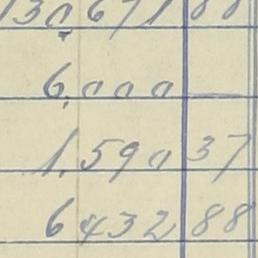 130,671 88
6,000 —
1,590 37
6432 88